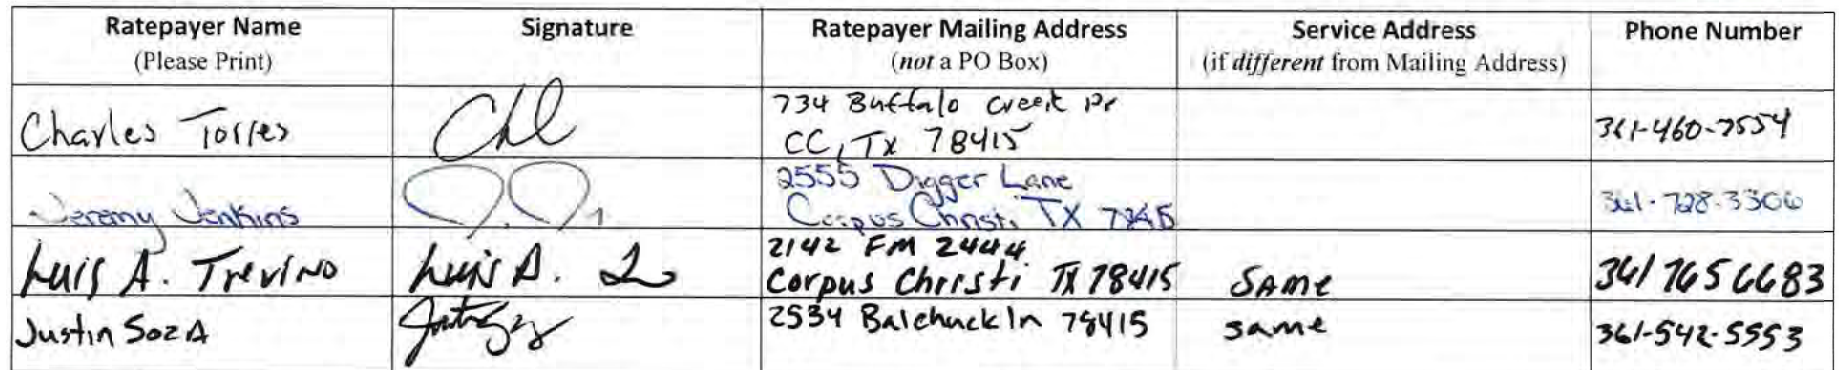 Ratepayer Name
(Please Print)
Signature
Ratepayer Mailing Address
(not a PO Box)
Service Address
(if different from Mailing Address)
Phone Number
Charles Torres
734 Buffalo Creek Dr
CC, Tx 78415
361-460-7554
Jeremy Jenkins
J.J.
2555 Digger Lane
Corpus Christi, TX
361-728-3306
Luis A. Trevino
Luis A.
2142 FM 2444
Corpus Christi TX 78415
SAME
361 765 6683
Justin SozA
2534 Balchuck ln 78415
same
361-542-5553